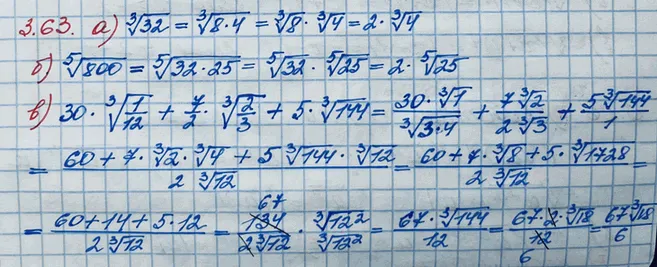 3.63. а) ∛32 = ∛(8·4) = ∛8 · ∛4 = 2·∛4
б) ⁵√800 = ⁵√(32·25) = ⁵√32 · ⁵√25 = 2·⁵√25
в) 30·∛(1/12) + 7/2·∛(2/3) + 5·∛144 = (30·∛1)/∛(3·4) + (7∛2)/(2∛3) + (5∛144)/1
= (60+7·∛2·∛4+5∛144·∛12)/(2∛12) = (60+7·∛8+5·∛1728)/(2∛12) =
= (60+14+5·12)/(2∛12) = 67 134/(2∛12) · ∛12²/∛12² = (67·∛144)/12 = (67·2·∛18)/12 6 = (67∛18)/6